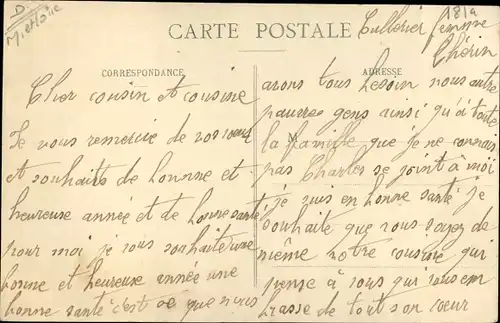 CARTE POSTALE
CORRESPONDANCE
ADRESSE
M
D
M et Loire
1819
femme
Cher cousin et cousine
Je vous remercie de vos voeux
et souhaits de bonnne et
heureuse année et de bonne santé
pour moi je vous souhaite une
bonne et heureuse année une
bonne santé c'est ce que nous
avons tous besoin nous autre
pauvres gens ainsi qu'à toute
la famille que je ne connais
pas Charles se joint à moi
je suis en bonne santé je
souhaite que vous soyez de
même votre cousine qui
pense à vous qui vous em
brasse de tout son coeur